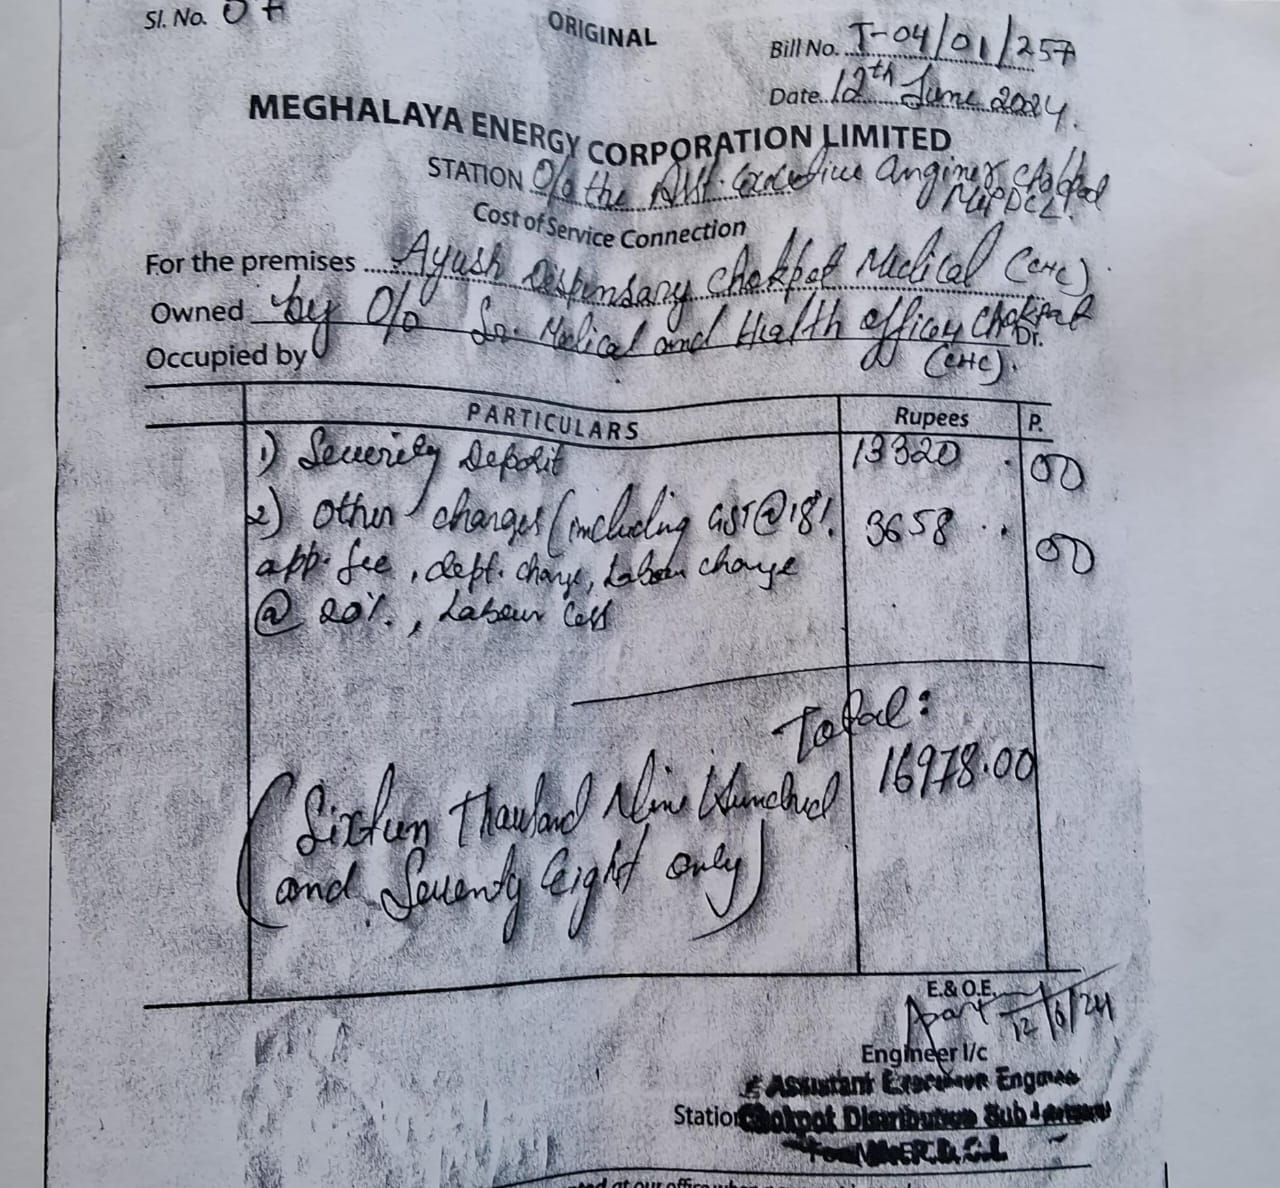 Sl. No. 07
ORIGINAL
Bill No. T-04/01/257
Date. 12th June 2024.
MEGHALAYA ENERGY CORPORATION LIMITED
STATION O/o the Asst. Executive Enginer Chokpot
MePDCL.
Cost of Service Connection
For the premises Ayush Dispensary Chokpot Medical (CHC).
Owned by O/o Sr. Medical and Health officer Chokpot
Dr.
Occupied by (CHC).
PARTICULARS Rupees P.
1) Security Deposit 13320 . 00
2) Other charges (including GST@18% 3658 . . 00
app. fee, deptt. charge, Labour charge
@ 20%., Labour Cess
Total:
16978.00
(Sixteen Thousand Nine Hundred
and Seventy Eight only)
E.& O.E.
12/6/24
Engineer I/c
Assistant Executive Engineer
Station Chokpot Distribution Sub-
at our office